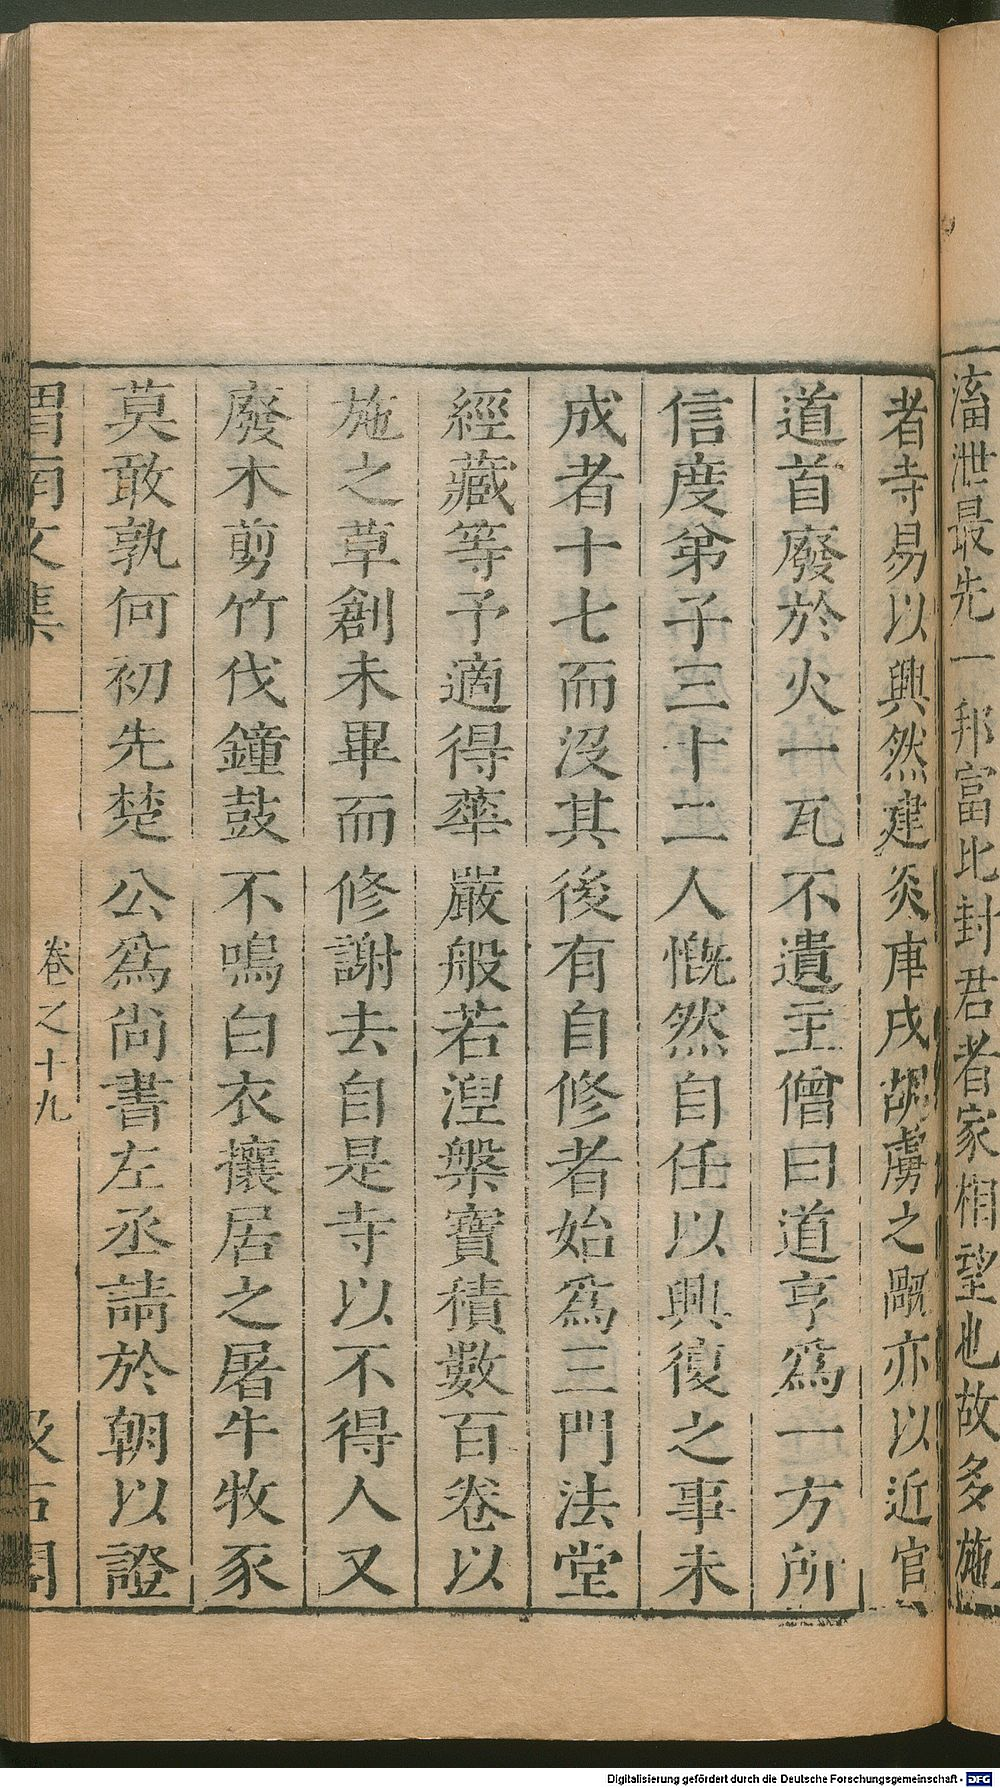 滀泄最先一邦富比封君者家相望也故多施
者寺易以興然建炎庚戌胡虜之𠞰亦以近官
道首廢於火一瓦不遺主僧曰道亨爲一方所
信度弟子三十二人慨然自任以興復之事未
成者十七而沒其後有自修者始爲三門法堂
經藏等予適得華嚴般若湼槃寶積數百卷以
施之草創未畢而修謝去自是寺以不得人又
廢木剪竹伐鐘鼓不鳴白衣攘居之屠牛牧豕
莫敢孰何初先楚公爲尙書左丞請於朝以證
渭南文集 卷之十九 汲古閣
Digitalisierung gefördert durch die Deutsche Forschungsgemeinschaft - DFG